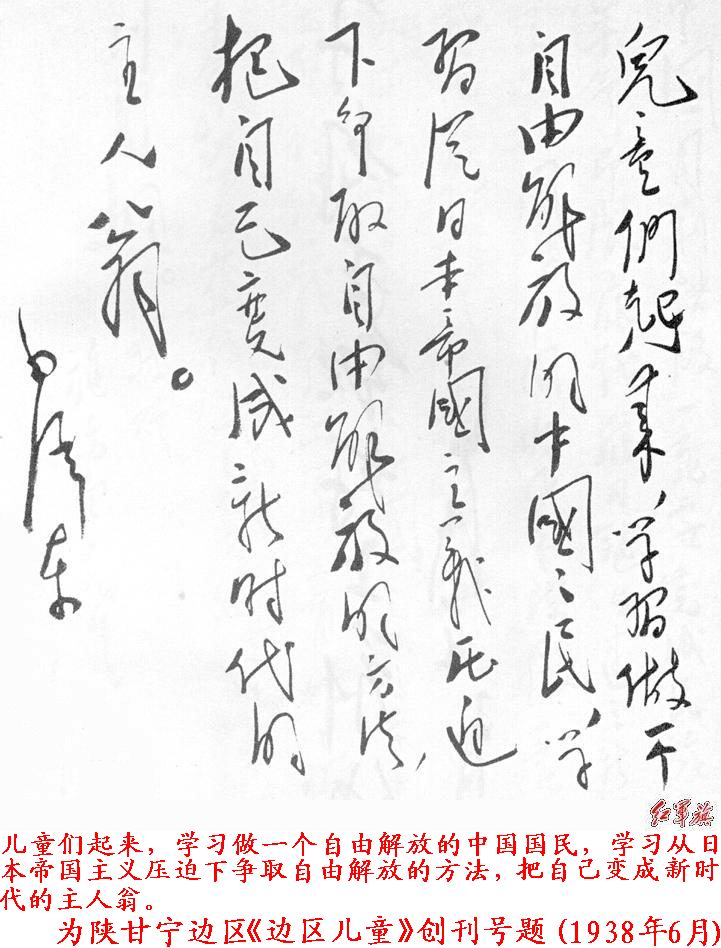 兒童們起来，学習做一个
自由解放的中國々民，学
習從日本帝國主義压迫
下争取自由解放的方法，
把自己变成新时代的
主人翁。
毛泽东
红军旗
儿童们起来，学习做一个自由解放的中国国民，学习从日
本帝国主义压迫下争取自由解放的方法，把自己变成新时
代的主人翁。
为陕甘宁边区《边区儿童》创刊号题 (1938年6月)